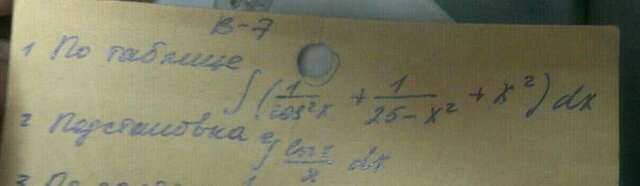 В-7
1 По таблице
∫ (1/cos²x + 1/25-x² + x²) dx
2 Подстановка
∫ ln x/x dx